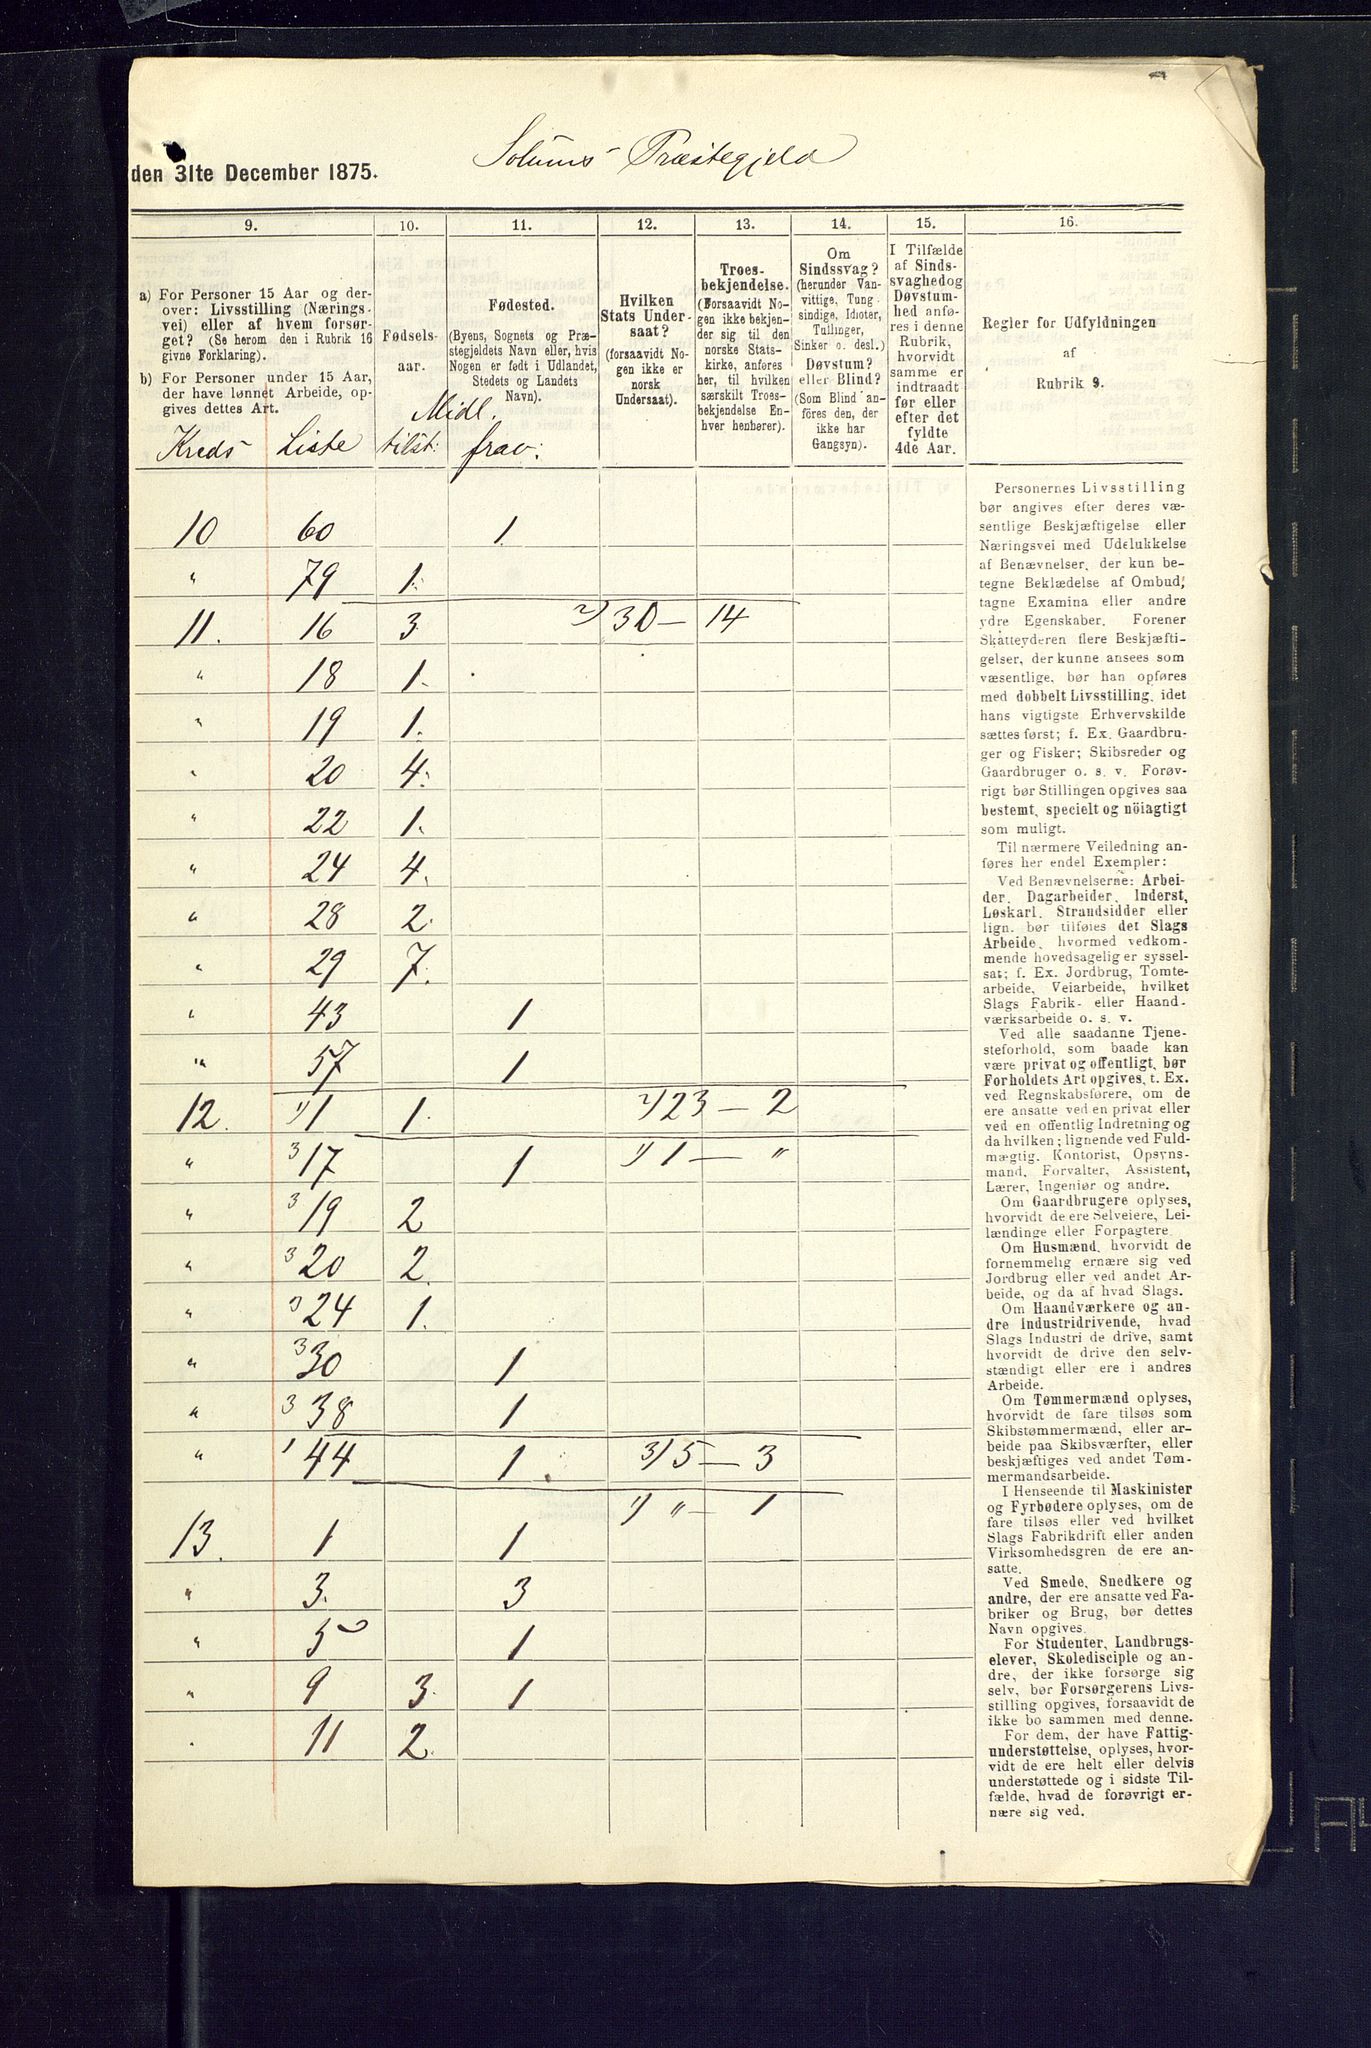 Solums Præstegjeld
den 31te December 1875.
9. 10. 11. 12. 13. 14. 15. 16.
a) For Personer 15 Aar og der-
over: Livsstilling (Nærings-
vei) eller af hvem forsør-
get? (Se herom den i Rubrik 16
givne Forklaring).
b) For Personer under 15 Aar,
der have lønnet Arbeide, op-
gives dettes Art.
Fødsels-
aar.
Fødested.
(Byens, Sognets og Præ-
stegjeldets Navn eller, hvis
Nogen er født i Udlandet,
Stedets og Landets
Navn).
Hvilken
Stats Under-
saat?
(forsaavidt No-
gen ikke er
norsk
Undersaat).
Troes-
bekjendelse.
(Forsaavidt No-
gen ikke bekjen-
der sig til den
norske Stats-
kirke, anføres
her, til hvilken
særskilt Troes-
bekjendelse En-
hver henhører).
Om
Sindssvag?
(herunder Van-
vittige, Tung-
sindige, Idioter,
Tullinger,
Sinker o. desl.)
Døvstum?
eller Blind?
(Som Blind an-
føres den, der
ikke har
Gangsyn).
I Tilfælde
af Sinds-
svaghed og
Døvstum-
hed anfø-
res i denne
Rubrik,
hvorvidt
samme er
indtraadt
før eller
efter det
fyldte
4de Aar.
Regler for Udfyldningen
af
Rubrik 9.
Midl.
Kreds Liste tilst: frav:
10 60 1.
" 79 1.
11. 16 3 2) 30 – 14
" 18 1.
" 19 1.
" 20 4.
" 22 1.
" 24 4.
" 28 2.
" 29 7.
" 43 1
" 57 1
12. 1) 1 1. 2) 23 – 2
" 3 17 1 1) 1 – "
" 3 19 2
" 3 20 2.
" 3 24 1.
" 3 30 1
" 3 38 1
" 1 44 1. 3) 5 – 3
1) " – 1
13. 1 1
" 3. 3
" 5 1
" 9 3. 1
" 11 2.
Personernes Livsstilling
bør angives efter deres væ-
sentlige Beskjæftigelse eller
Næringsvei med Udelukkelse
af Benævnelser, der kun be-
tegne Beklædelse af Ombud,
tagne Examina eller andre
ydre Egenskaber. Forener
Skatteyderen flere Beskjæfti-
gelser, der kunne ansees som
væsentlige, bør han opføres
med dobbelt Livsstilling, idet
hans vigtigste Erhvervskilde
sættes først; f. Ex. Gaardbru-
ger og Fisker; Skibsreder og
Gaardbruger o. s. v. Forøv-
rigt bør Stillingen opgives saa
bestemt, specielt og nöiagtigt
som muligt.
Til nærmere Veiledning an-
føres her endel Exempler:
Ved Benævnelserne: Arbei-
der, Dagarbeider, Inderst,
Løskarl, Strandsidder eller
lign. bør tilføies det Slags
Arbeide, hvormed vedkom-
mende hovedsagelig er syssel-
sat; f. Ex. Jordbrug, Tomte-
arbeide, Veiarbeide, hvilket
Slags Fabrik- eller Haand-
værksarbeide o. s. v.
Ved alle saadanne Tjene-
steforhold, som baade kan
være privat og offentligt, bør
Forholdets Art opgives, t. Ex.
ved Regnskabsførere, om de
ere ansatte ved en privat eller
ved en offentlig Indretning og
da hvilken; lignende ved Fuld-
mægtig, Kontorist, Opsyns-
mand, Forvalter, Assistent,
Lærer, Ingeniør og andre.
Om Gaardbrugere oplyses,
hvorvidt de ere Selveiere, Lei-
lændinge eller Forpagtere.
Om Husmænd, hvorvidt de
fornemmelig ernære sig ved
Jordbrug eller ved andet Ar-
beide, og da af hvad Slags.
Om Haandværkere og an-
dre Industridrivende, hvad
Slags Industri de drive, samt
hvorvidt de drive den selv-
stændigt eller ere i andres
Arbeide.
Om Tømmermænd oplyses,
hvorvidt de fare tilsøs som
Skibstømmermænd, eller ar-
beide paa Skibsværfter, eller
beskjæftiges ved andet Tøm-
mermandsarbeide.
I Henseende til Maskinister
og Fyrbødere oplyses, om de
fare tilsøs eller ved hvilket
Slags Fabrikdrift eller anden
Virksomhedsgren de ere an-
satte.
Ved Smede, Snedkere og
andre, der ere ansatte ved Fa-
briker og Brug, bør dettes
Navn opgives.
For Studenter, Landbrugs-
elever, Skoledisciple og an-
dre, der ikke forsørge sig
selv, bør Forsørgerens Livs-
stilling opgives, forsaavidt de
ikke bo sammen med denne.
For dem, der have Fattig-
understøttelse, oplyses, hvor-
vidt de ere helt eller delvis
understøttede og i sidste Til-
fælde, hvad de forøvrigt er-
nære sig ved.